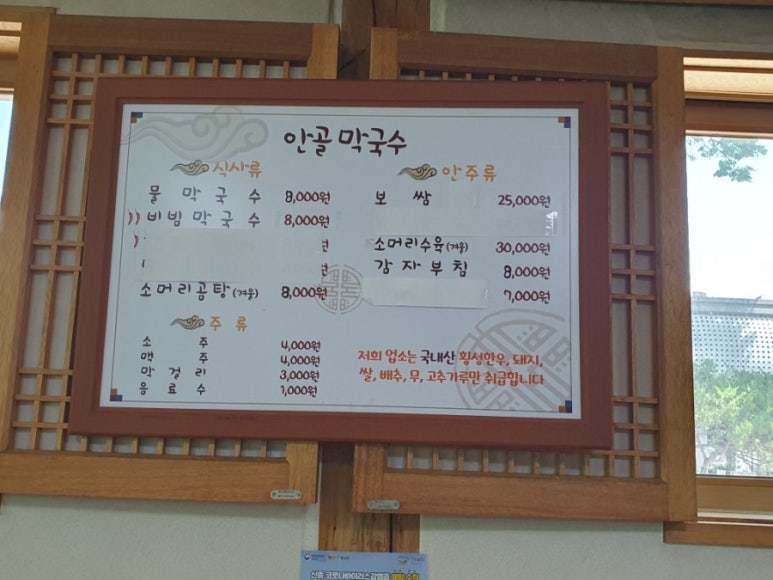 안골막국수
식사류
물 막 국 수 8,000원
비 빔 막 국 수 8,000원
원
원
소머리곰탕(겨울) 8,000원
주 류
소 주 4,000원
맥 주 4,000원
막 걸 리 3,000원
음 료 수 1,000원
안주류
보 쌈 25,000원
소머리수육(겨울) 30,000원
감 자 부 침 8,000원
7,000원
저희 업소는 국내산 횡성한우, 돼지,
쌀, 배추, 무, 고추가루만 취급합니다
신종 코로나바이러스감염증